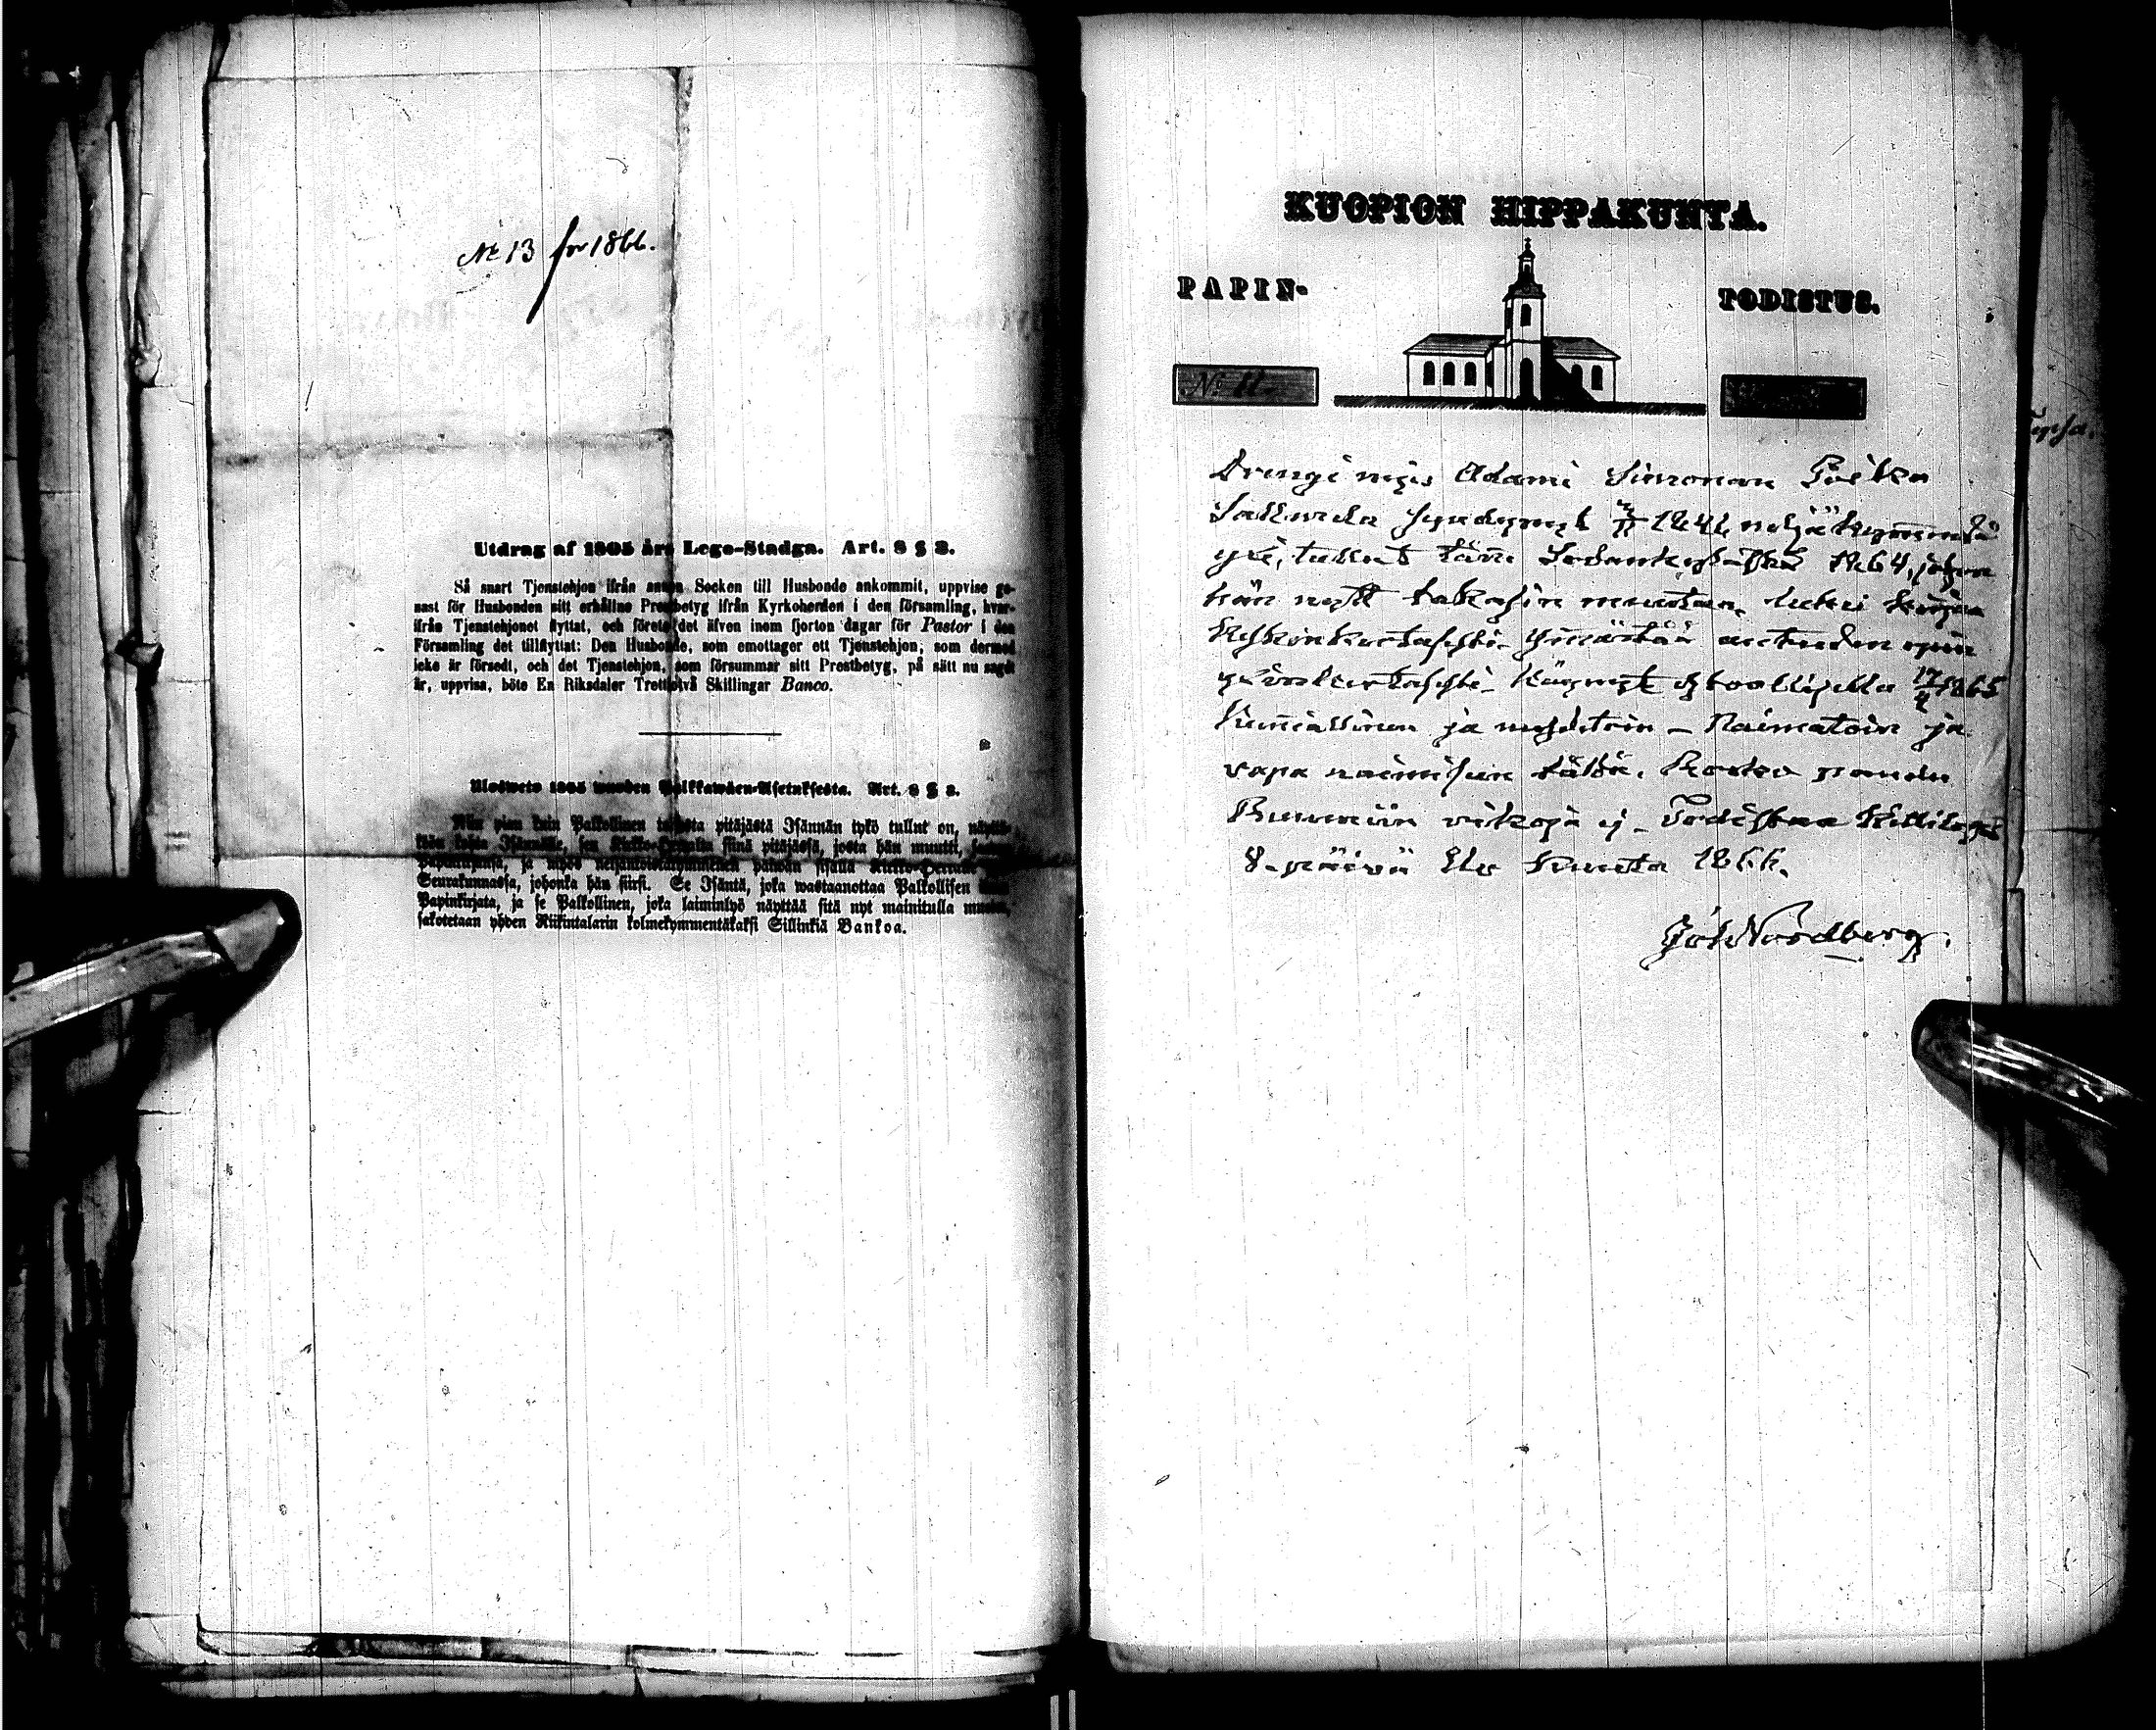 № 13 för 1866.
Utdrag af 1805 års Lego-Stadga. Art. 8 § 3.
Så snart Tjenstehjon ifrån annan Socken till Husbonde ankommit, uppvise ge-
nast för Husbonden sitt erhållne Prestbetyg ifrån Kyrkoherden i den församling, hvar-
ifrån Tjenstehjonet flyttat, och förete det äfven inom fjorton dagar för Pastor i den
Församling det tillflyttat: Den Husbonde, som emottager ett Tjenstehjon, som dermed
icke är försedt, och det Tjenstehjon, som försummar sitt Prestbetyg, på sätt nu sagdt
är, uppvisa, böte En Riksdaler Trettiotvå Skillingar Banco.
Ulosweto 1805 wuoden Palkkawäen-Asetuksesta. Art. 8 § 3.
Niin pian kuin Palkollinen toisesta pitäjästä Isännän tykö tullut on, näyttä-
köön kohta Isännälle, sen Kirkko-Herralta siinä pitäjässä, josta hän muutti,
Papinkirjansa, ja myös neljäntoistakymmenen päiwän sisällä Kirkko-Herralle
Seurakunnassa, johonka hän siirsi. Se Isäntä, joka wastaanottaa Palkollisen
Papinkirjata, ja se Palkollinen, joka laiminlyö näyttää sitä nyt mainitulla
sakotetaan yhden Riikintalarin kolmekymmentäkaksi Sillinkiä Bankoa.
KUOPION HIPPAKUNTA.
PAPIN-
TODISTUS.
№ 11
Drengi mies Adami Simonan Poika
syndynyt 1841 neljäkymmendä
yxi, tullut tänne Sodankylästä 1864, johon
hän nyt takasin muutaa, lukee kirjaa
ymärtää autuden opin
Käynyt 17/4 1865
Kunniallinen ja - Naimatoin ja
vapa naimiseen täldä. Rokko pandu
Ruumiin vikoja ej - Todistaa Kittilassa
8. päivä Elo Kuuta 1866.
Joh Nordberg.